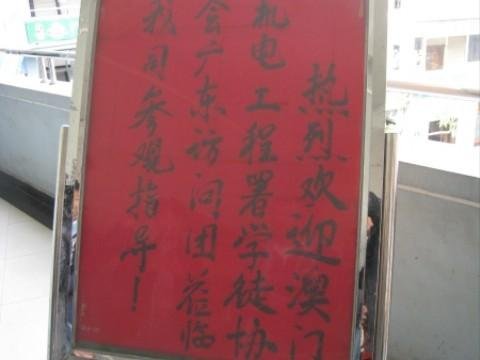 热烈欢迎澳门
机电工程署学徒协
会广东访问团莅临
我司参观指导！